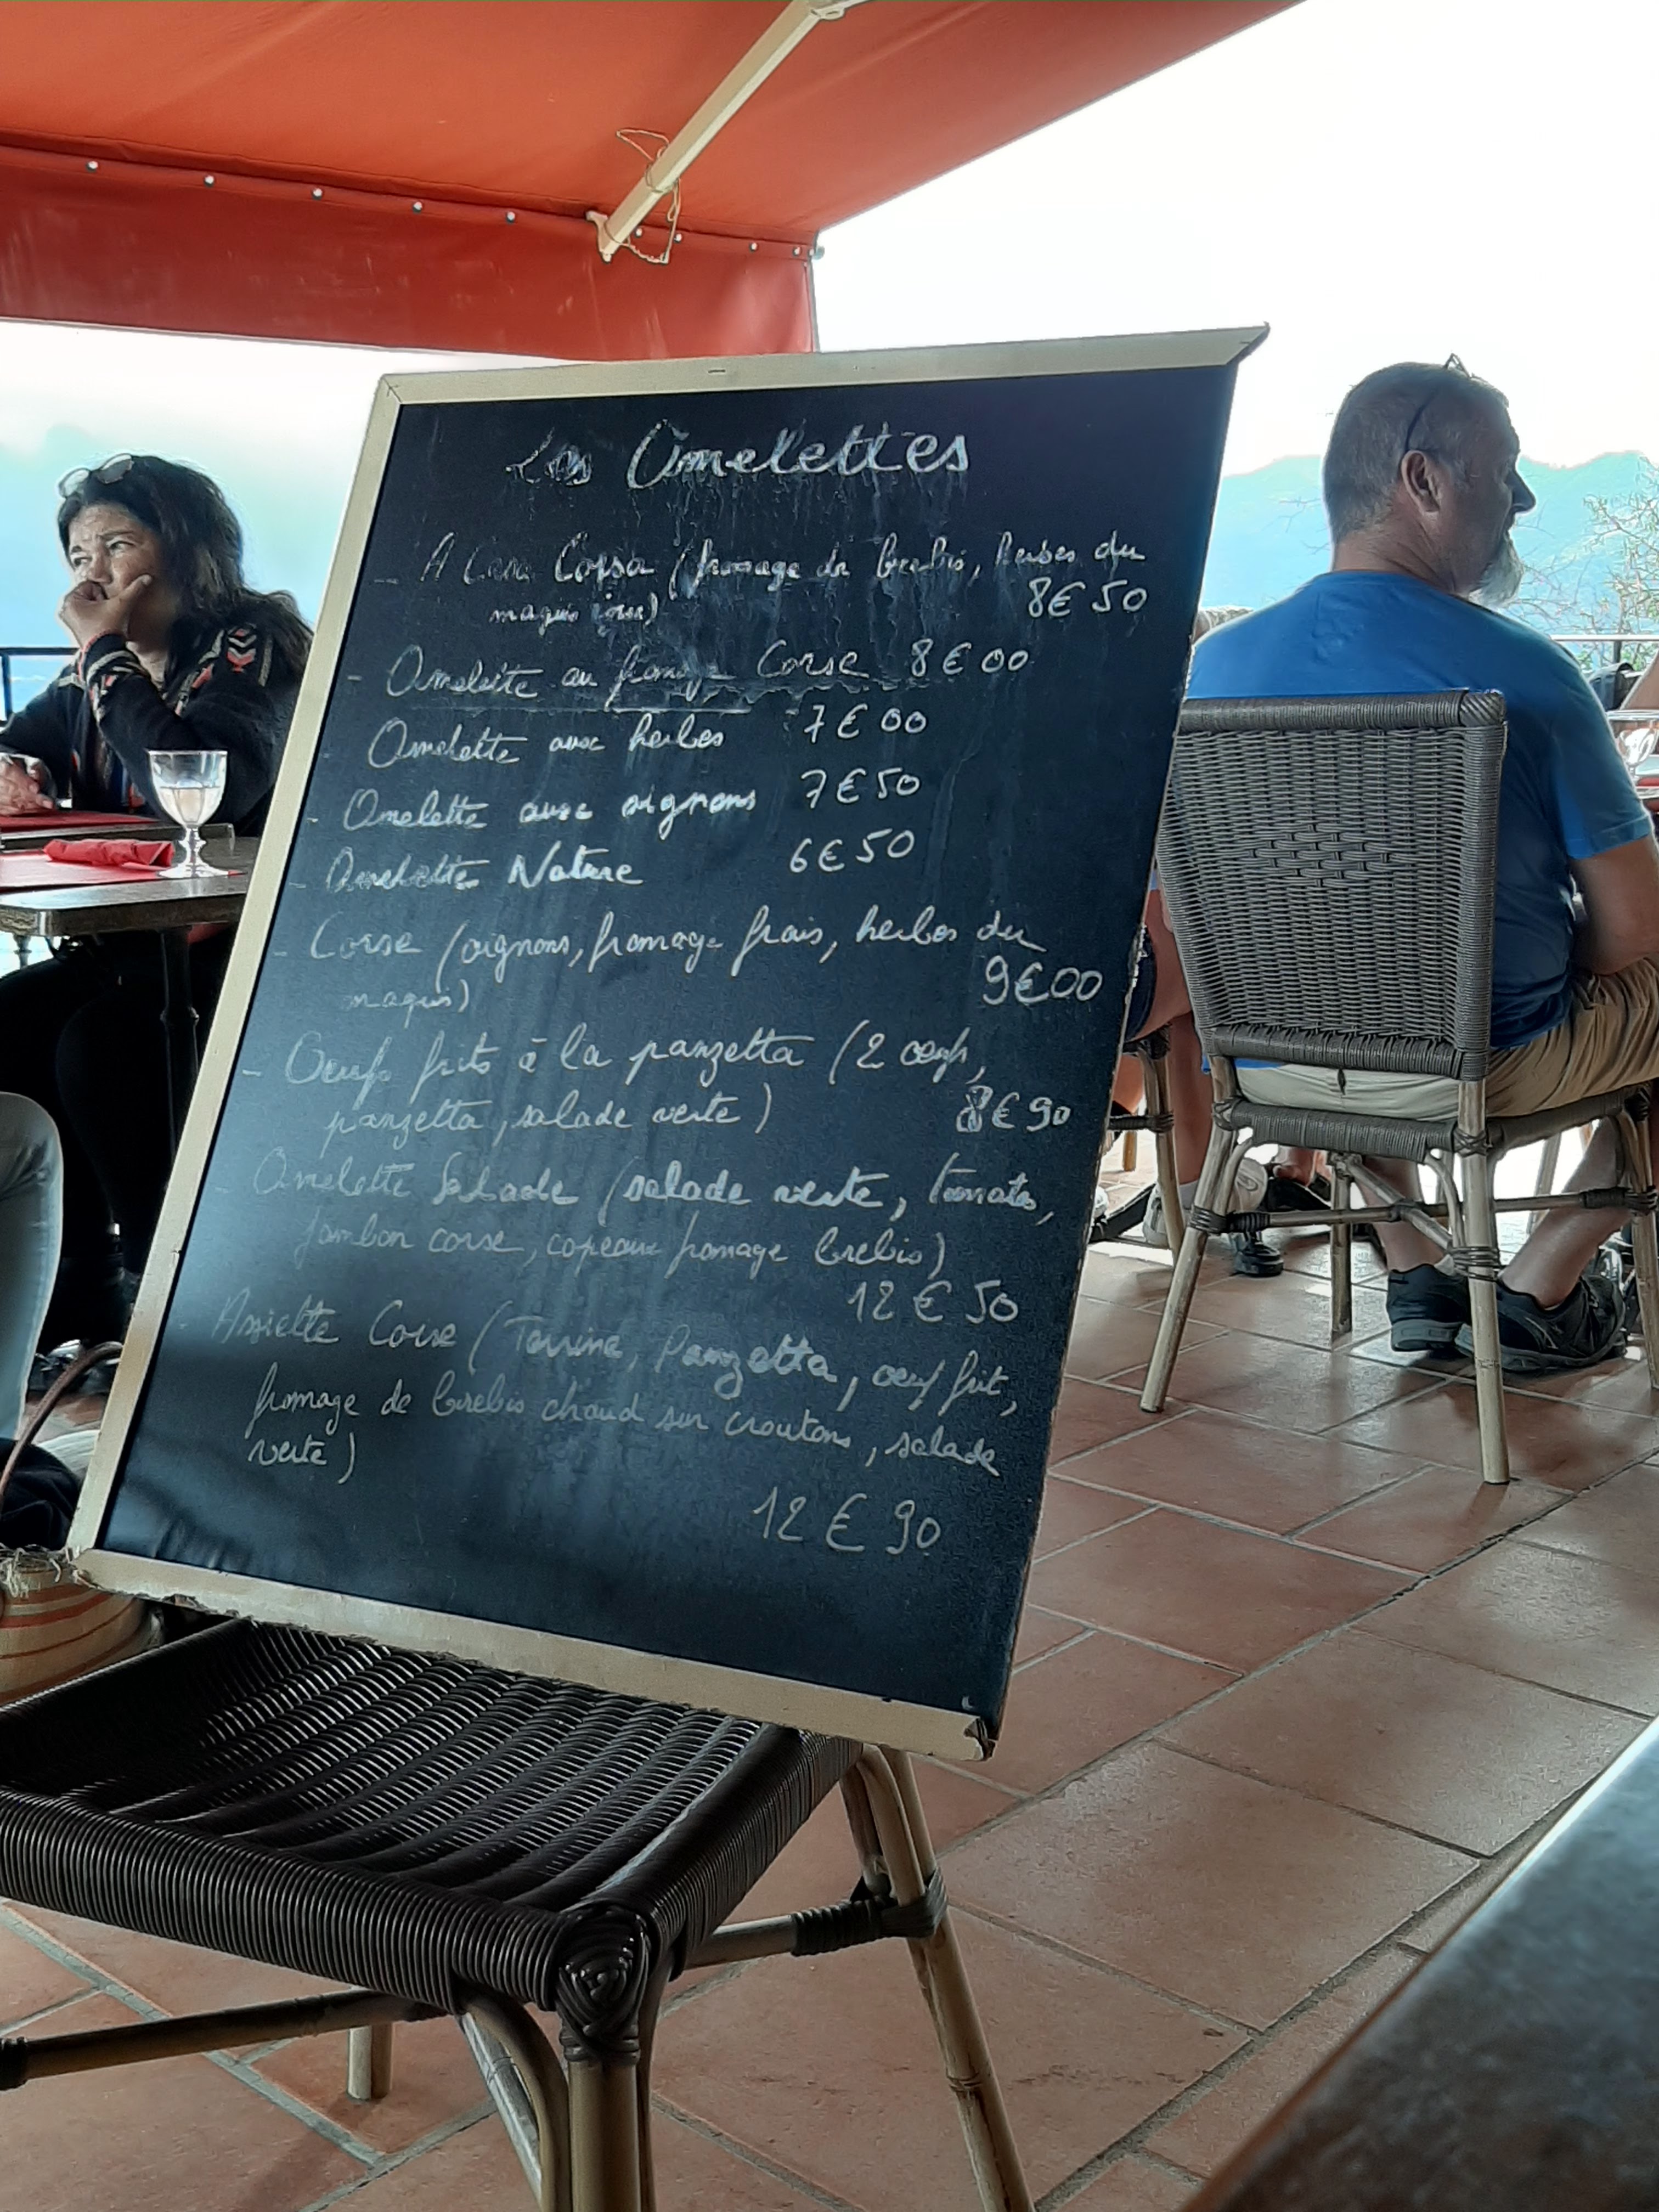 Les Omelettes
- A Casa Corsa (fromage de brebis, herbes du
maquis
8€50
- Omelette au fromage Corse 8€00
Omelette avec herbes 7€00
- Omelette avec oignons 7€50
- Omelette Nature 6€50
- Corse (oignons, fromage frais, herbes du
maquis) 9€00
- Oeufs frits à la panzetta (2 oeufs,
panzetta, salade verte) 8€90
- Omelette Salade (salade verte, tomates,
jambon corse, copeaux fromage brebis)
12€50
- Assiette Corse (Terrine, Panzetta, oeuf frit,
fromage de brebis chaud sur croutons, salade
verte)
12€90